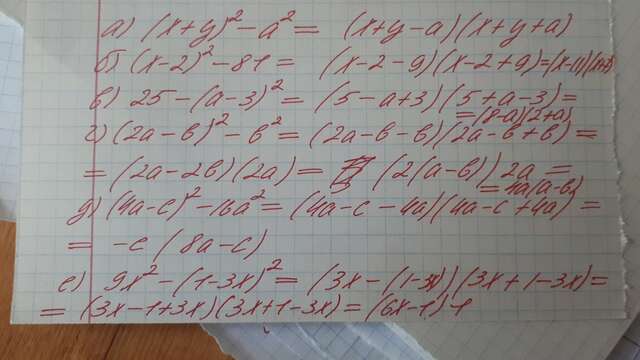 а) (x+y)² - a² = (x+y-a)(x+y+a)
б) (x-2)² - 81 = (x-2-9)(x-2+9)=(x-11)(x+7)
в) 25-(a-3)² = (5-a+3)(5+a-3)=
=(8-a)(2+a)
г) (2a-b)² - b² = (2a-b-b)(2a-b+b)=
= (2a-2b)(2a) = (2(a-b))2a =
= 4a(a-b)
д) (4a-c)² - 16a² = (4a-c-4a)(4a-c+4a)=
= -c (8a-c)
е) 9x² - (1-3x)² = (3x-(1-3x))(3x+1-3x)=
= (3x-1+3x)(3x+1-3x) = (6x-1)·1